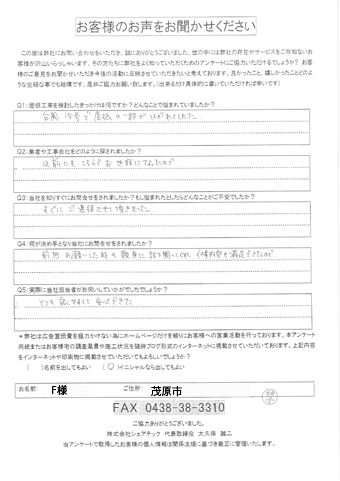 お客様のお声をお聞かせください
この度は弊社にお問い合わせをいただき、誠にありがとうございました。世の中には弊社の存在やサービスをご存知ないお
客様が沢山いらっしゃいます。その方たちに弊社をよく知っていただくためのアンケートにご協力いただけるでしょうか？ お客
様のご意見をお聞かせいただき今後の活動に反映させていただきたいと考えております。良かったこと、嬉しかったことどのよ
うな些細な事でも結構です、是非ご協力お願い致します。（出来るだけ具体的に書いていただければ幸いです）
Q1：屋根工事を検討したきっかけは何ですか？どんなことで悩まれていましたか？
台風15号で屋根の一部がはがれてしまった
Q2：業者や工事会社をどのように探されましたか？
以前にもこちらでお世話になったので
Q3：当社を知りすぐにお問合せをされましたか？もし悩まれたとしたらどんなことがご不安でしたか？
すぐにご連絡させて頂きました
Q4：何が決め手となり当社にお問合せをされましたか？
前回お願いした時も親身に話を聞いてくれ
Q5：実際に当社担当者がお伺いしていかがでしたでしょうか？
とても話しやすくて安心できた
＊弊社は広告宣伝費を極力かけない為にホームページだけを頼りにお客様への営業活動を行っております。本アンケート
用紙またはお客様宅の調査風景や施工状況を随時ブログ形式のインターネットに掲載させていただいております。上記内容
をインターネットや印刷物に掲載させていただいてもよろしいでしょうか？
（　）名前を出してもよい （○）イニシャルなら出してもよい
お名前： F様 ご住所： 茂原市
FAX 0438-38-3310
ご協力ありがとうございました。
株式会社シェアテック 代表取締役 大久保 誠二
当アンケートで取得したお客様の個人情報は関係法規に基づき厳正に管理いたします。